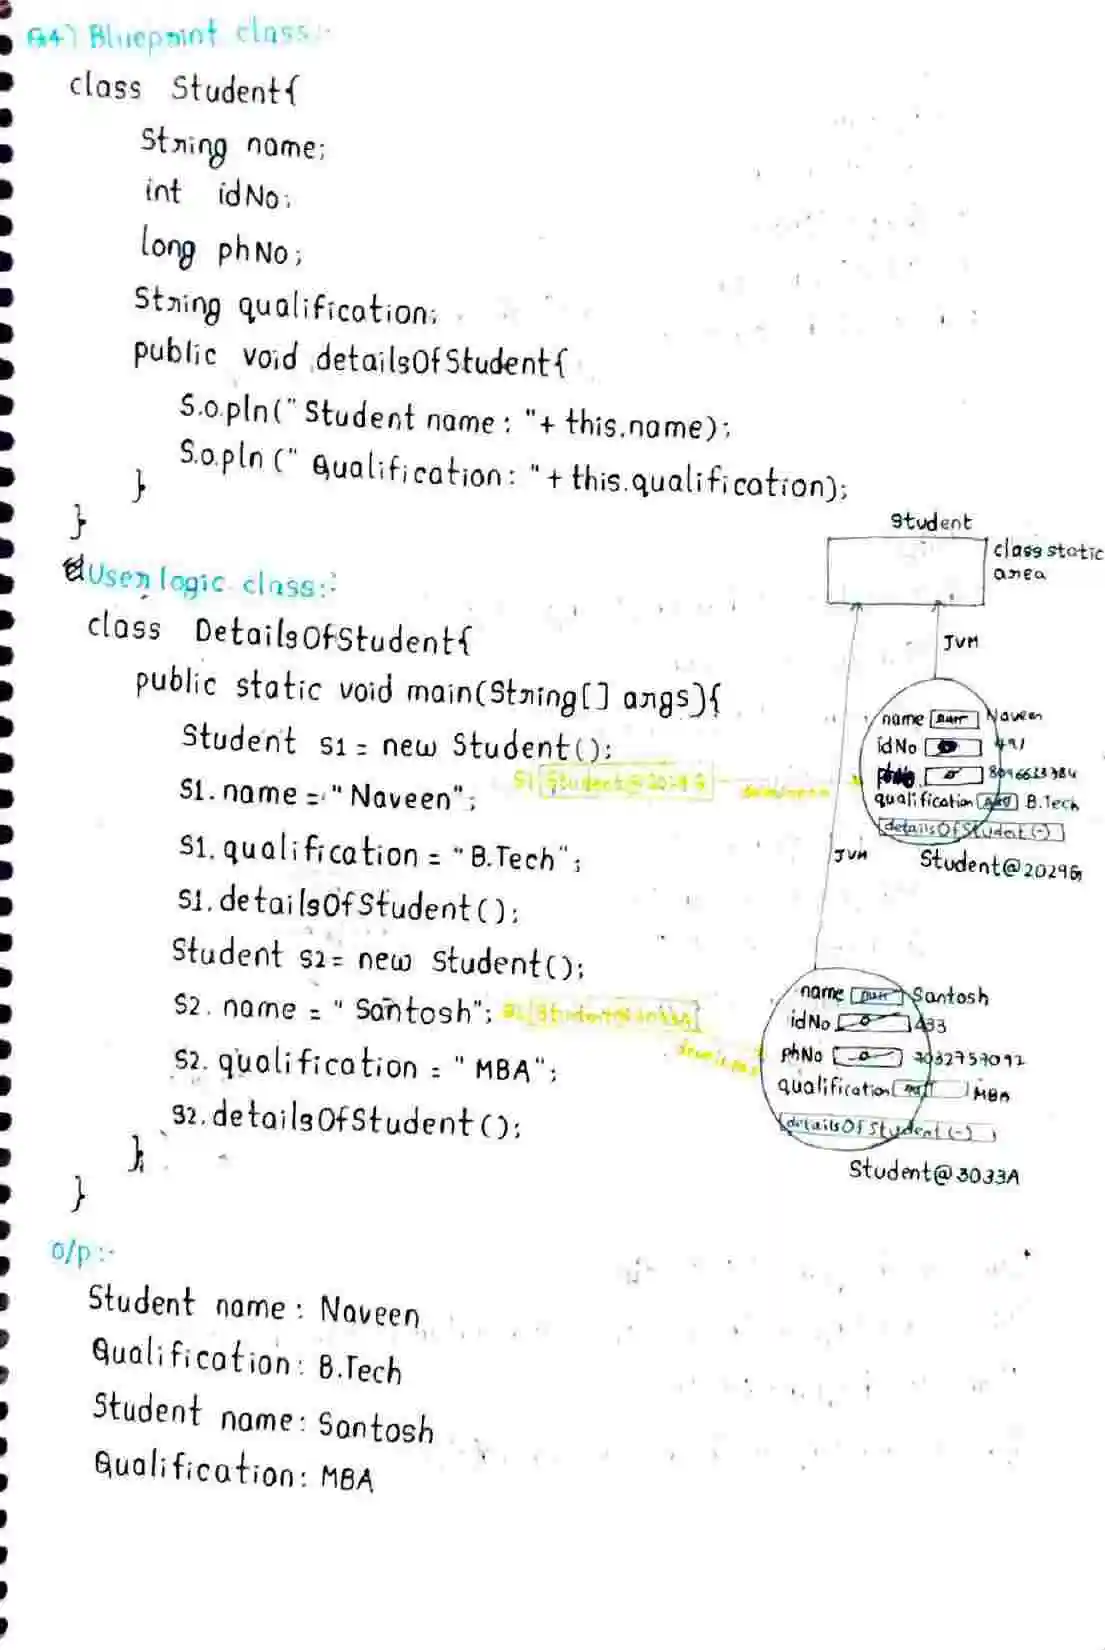 Q4) Blueprint class:-
class Student{
String name;
int idNo;
long phNo;
String qualification;
public void detailsOfStudent{
S.o.pln("Student name: "+ this.name);
S.o.pln (" Qualification: "+ this.qualification);
}
}
User logic class:-
class DetailsOfStudent{
public static void main(String[] args){
Student s1 = new Student();
s1.name = "Naveen";
s1.qualification = "B.Tech";
s1.detailsOfStudent();
Student s2 = new Student();
s2.name = "Santosh";
s2.qualification = "MBA";
s2.detailsOfStudent();
}
}
Student
class static
area
JVM
name Naveen
idNo 491
8096623384
qualification B.Tech
detailsOfStudent(-)
Student@2029G
S1 Student@2029G
JVM
name Santosh
idNo 0 433
phNo 0 7032757092
qualification MBA
detailsOfStudent(-)
Student@3033A
o/p:-
Student name: Naveen
Qualification: B.Tech
Student name: Santosh
Qualification: MBA